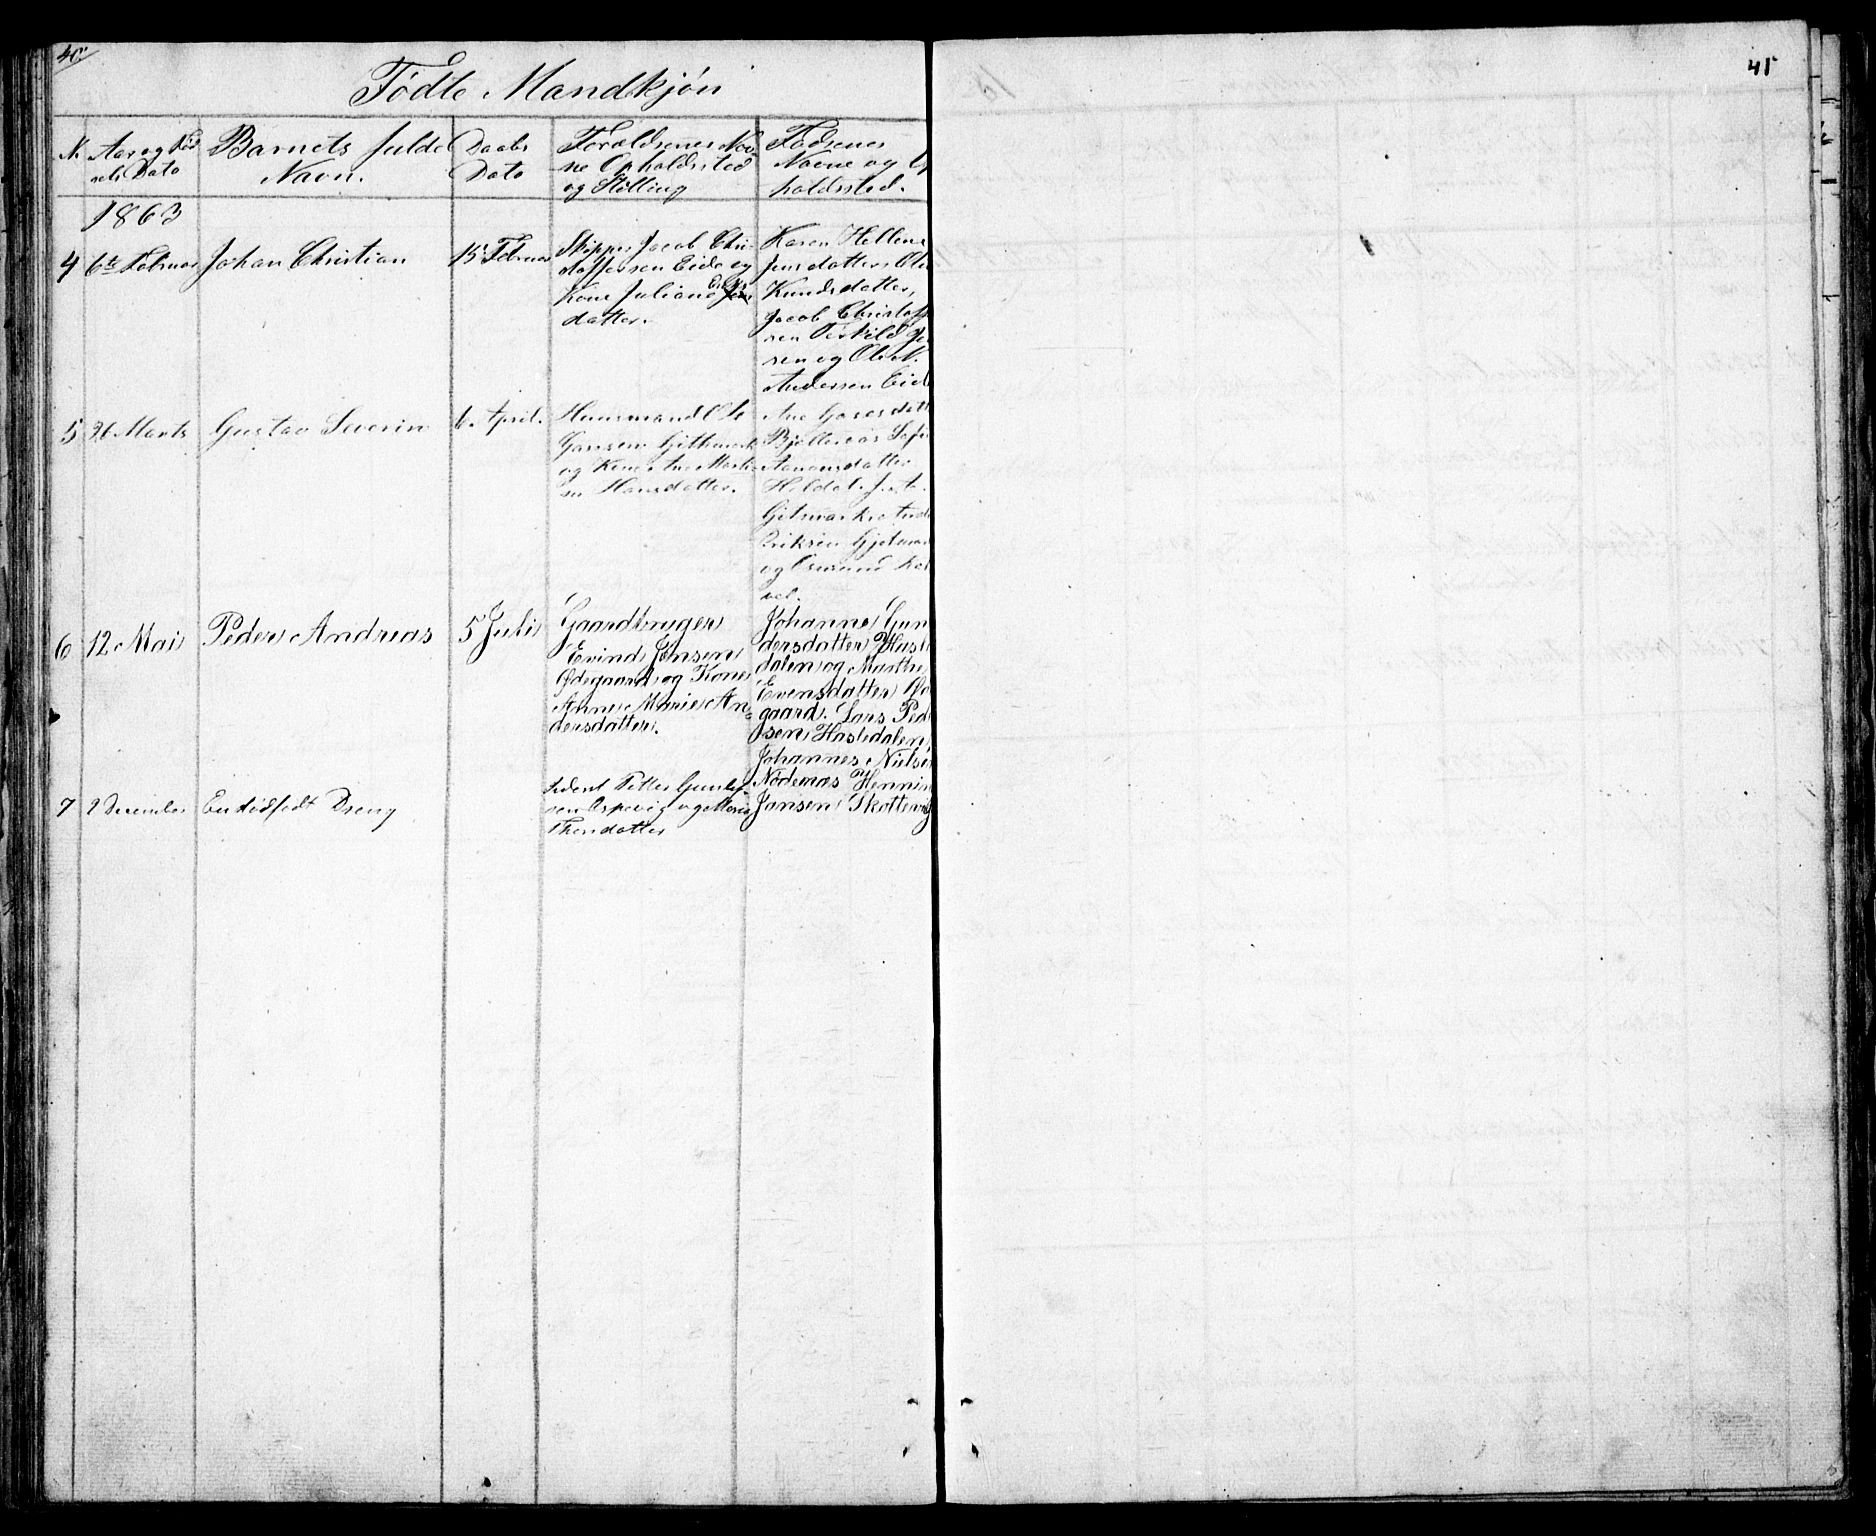 40
41
Fødte Mandkjøn
N. Aar og Fød
sels Dato
Barnets fulde
Navn.
Daabs
Dato
Foræld­renes Nav
ne Opholdssted
og Stilling
Faddernes
Navne og Op
holdssted.
1863
4 6te Februar Johan Christian 15 Februar
Skipper Jacob Chri
stoffersen Eide og
Kone Juliane
datter.
Karen Hellene
Jensdatter, Ole
Knudsdatter,
Jacob Christoff
sen Terkild Je
sen og Ole N.
Andersen Eide
5 26 Marts Gustav Severin 6 April.
Huusmand Ole
Hansen Githmark
og Kone Ane Marte
Hansdatter.
Ane
datt
Bjelleraas Sofi
Aanonsdatter
Heldal
Gitmark
Eriksen Gjetmar
og
vel.
6 12 Mai Peder Andreas 5 Juli
Gaardbruger
Evind Jensen
Ødegaard og Kone
Anne Marie An-
dersdatter.
Johanne Gun
dersdatter Hasle
dalen og Marthe
Evensdatter Øde
gaard. Lars Ped
sen Hasledalen,
Johannes Nielse
Nødenæs Hennin
Jansen Skottevig
7 2 December En dødfødt Dreng
Petter Gunlef
sen Espevig og Maria
datter